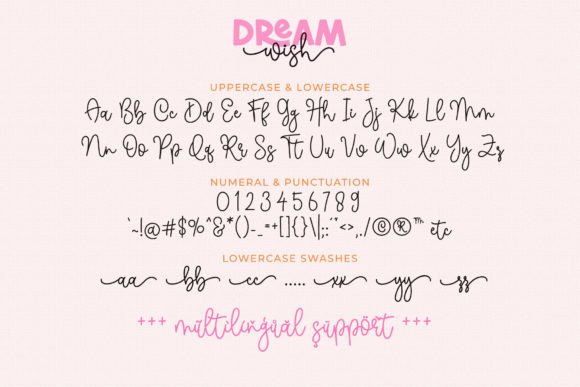 DREAM
wish
UPPERCASE & LOWERCASE
Aa Bb Cc Dd Ee Ff Gg Hh Ii Jj Kk Ll Mm
Nn Oo Pp Qq Rr Ss Tt Uu Vv Ww Xx Yy Zz
NUMERAL & PUNCTUATION
0123456789
`~!@#$%^&*()-_=+[]{}\|;:'"<>,./©®™ etc
LOWERCASE SWASHES
aa bb cc ..... xx yy zz
+++ multilingual support +++